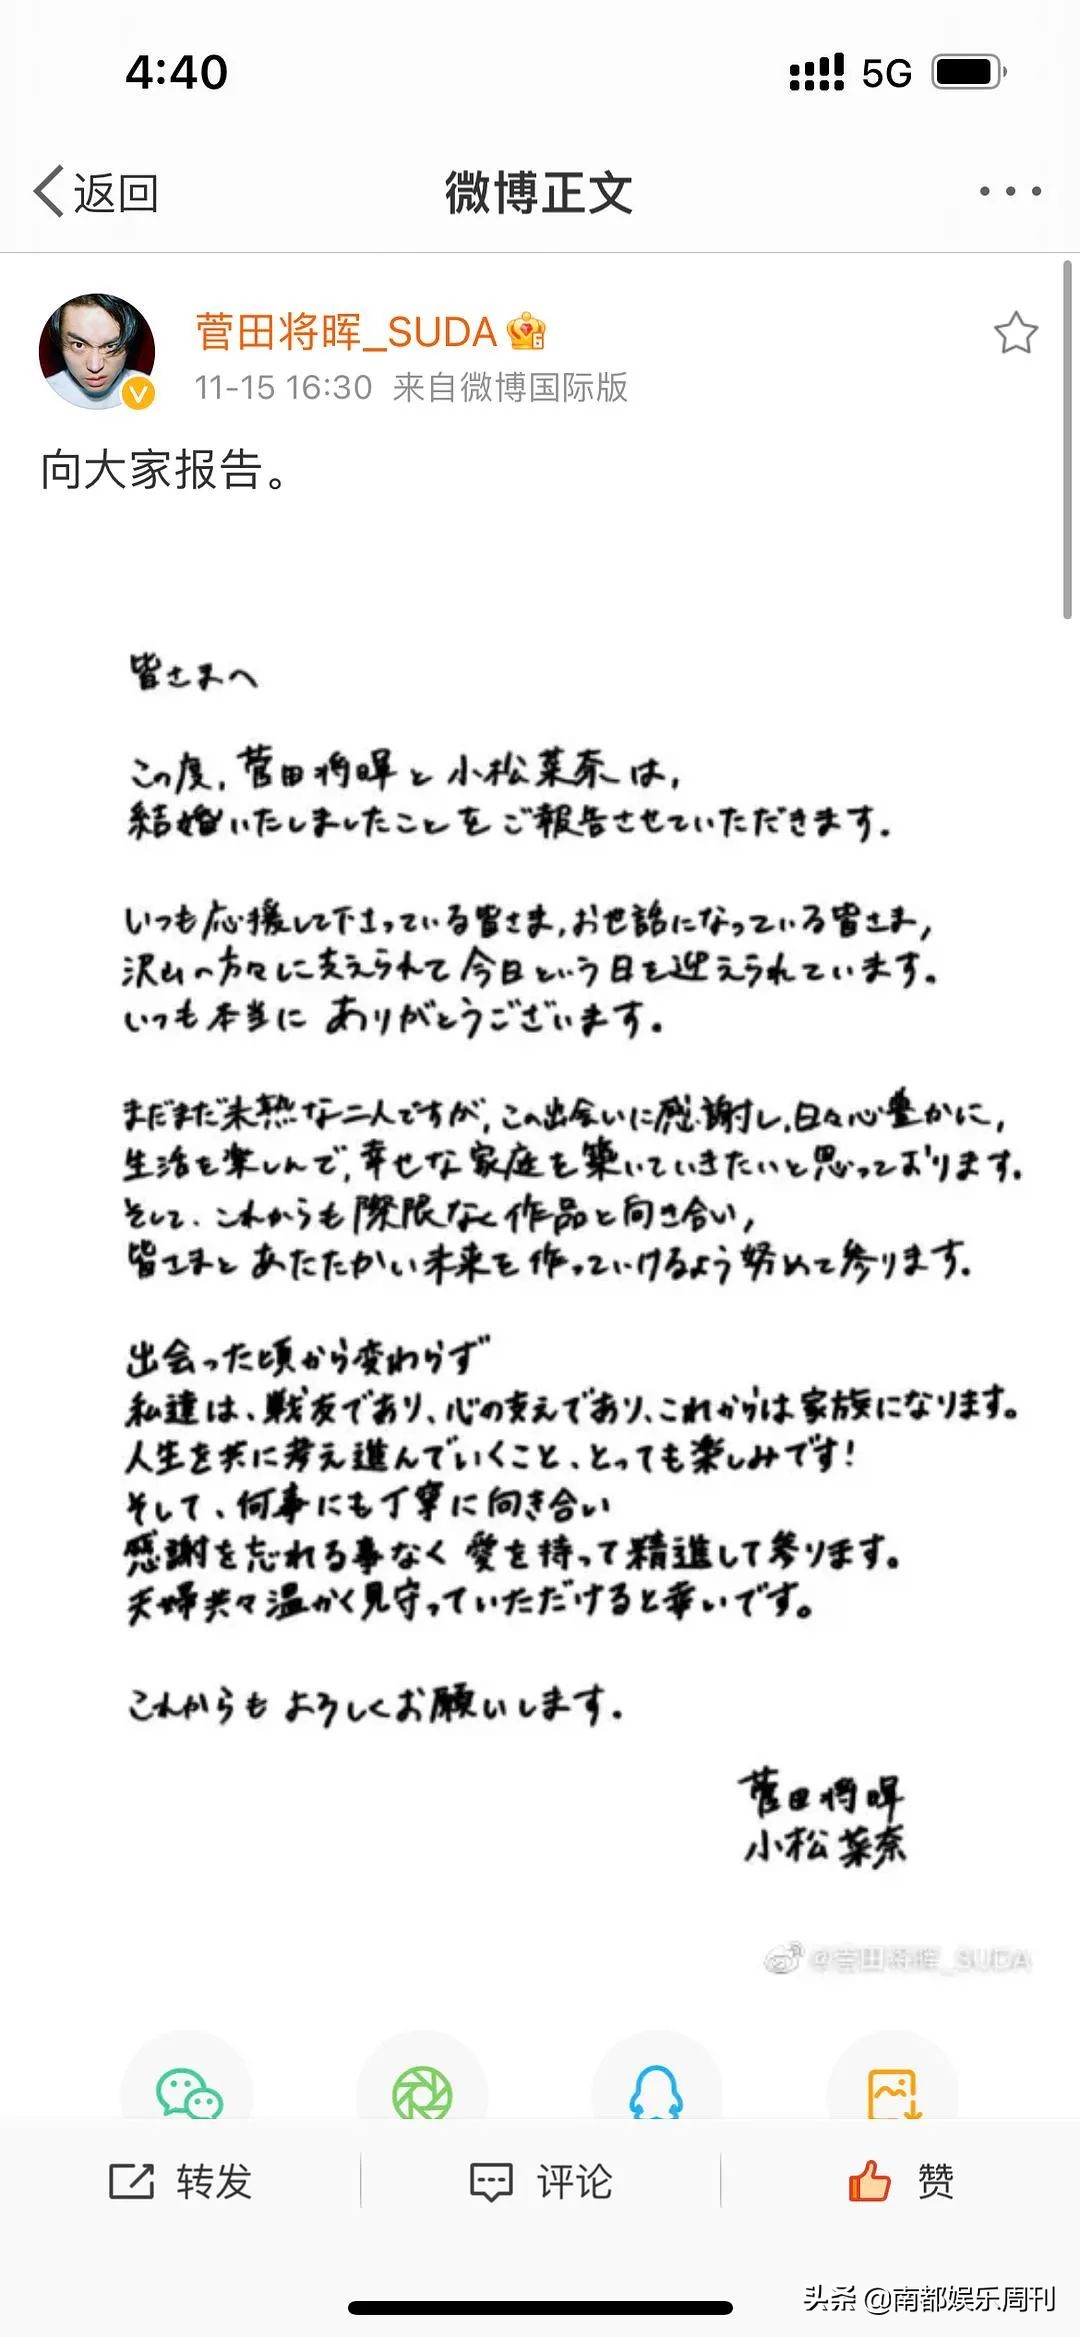 4:40
5G
返回
微博正文
菅田将晖_SUDA
11-15 16:30 来自微博国际版
向大家报告。
皆さまへ
この度,菅田将暉と小松菜奈は,
結婚いたしましたことをご報告させていただきます.
いつも応援して下さっている皆さま,お世話になっている皆さま,
沢山の方々に支えられて今日という日を迎えられています.
いつも本当に ありがとうございます.
まだまだ未熟な二人ですが,この出会いに感謝し,日々心豊かに,
生活を楽しんで,幸せな家庭を築いていきたいと思っております.
そして、これからも際限なく作品と向き合い,
皆さまと あたたかい未来を作っていけるよう努めて参ります.
出会った頃から変わらず
私達は、戦友であり、心の支えであり、これからは家族になります。
人生を共に考え進んでいくこと、とっても楽しみです!
そして、何事にも丁寧に向き合い
感謝を忘れる事なく 愛を持って精進して参ります。
夫婦共々温かく見守っていただけると幸いです。
これからも よろしくお願いします.
菅田将暉
小松菜奈
@菅田将晖_SUDA
转发
评论
赞
头条 @南都娱乐周刊